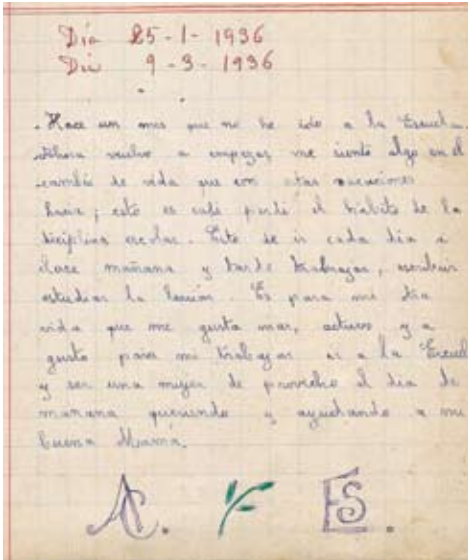 Día 25-1-1936
Día 9-3-1936
Hace un mes que no he ido a la Escuela
Ahora vuelvo a empezar me siento algo en el
cambio de vida que con estas vacaciones
hacia; esto es casi perdí el hábito de la
diciplina escolar. Esto de ir cada día a
clase mañana y tarde trabajar, escribir
estudiar la lección. Es para mi otra
vida que me gusta mas, activo y a
gusto para mi trabajar ir a la Escuel
y ser una mujer de provecho el dia de
mañana queriendo y ayudando a mi
buena Mamá.